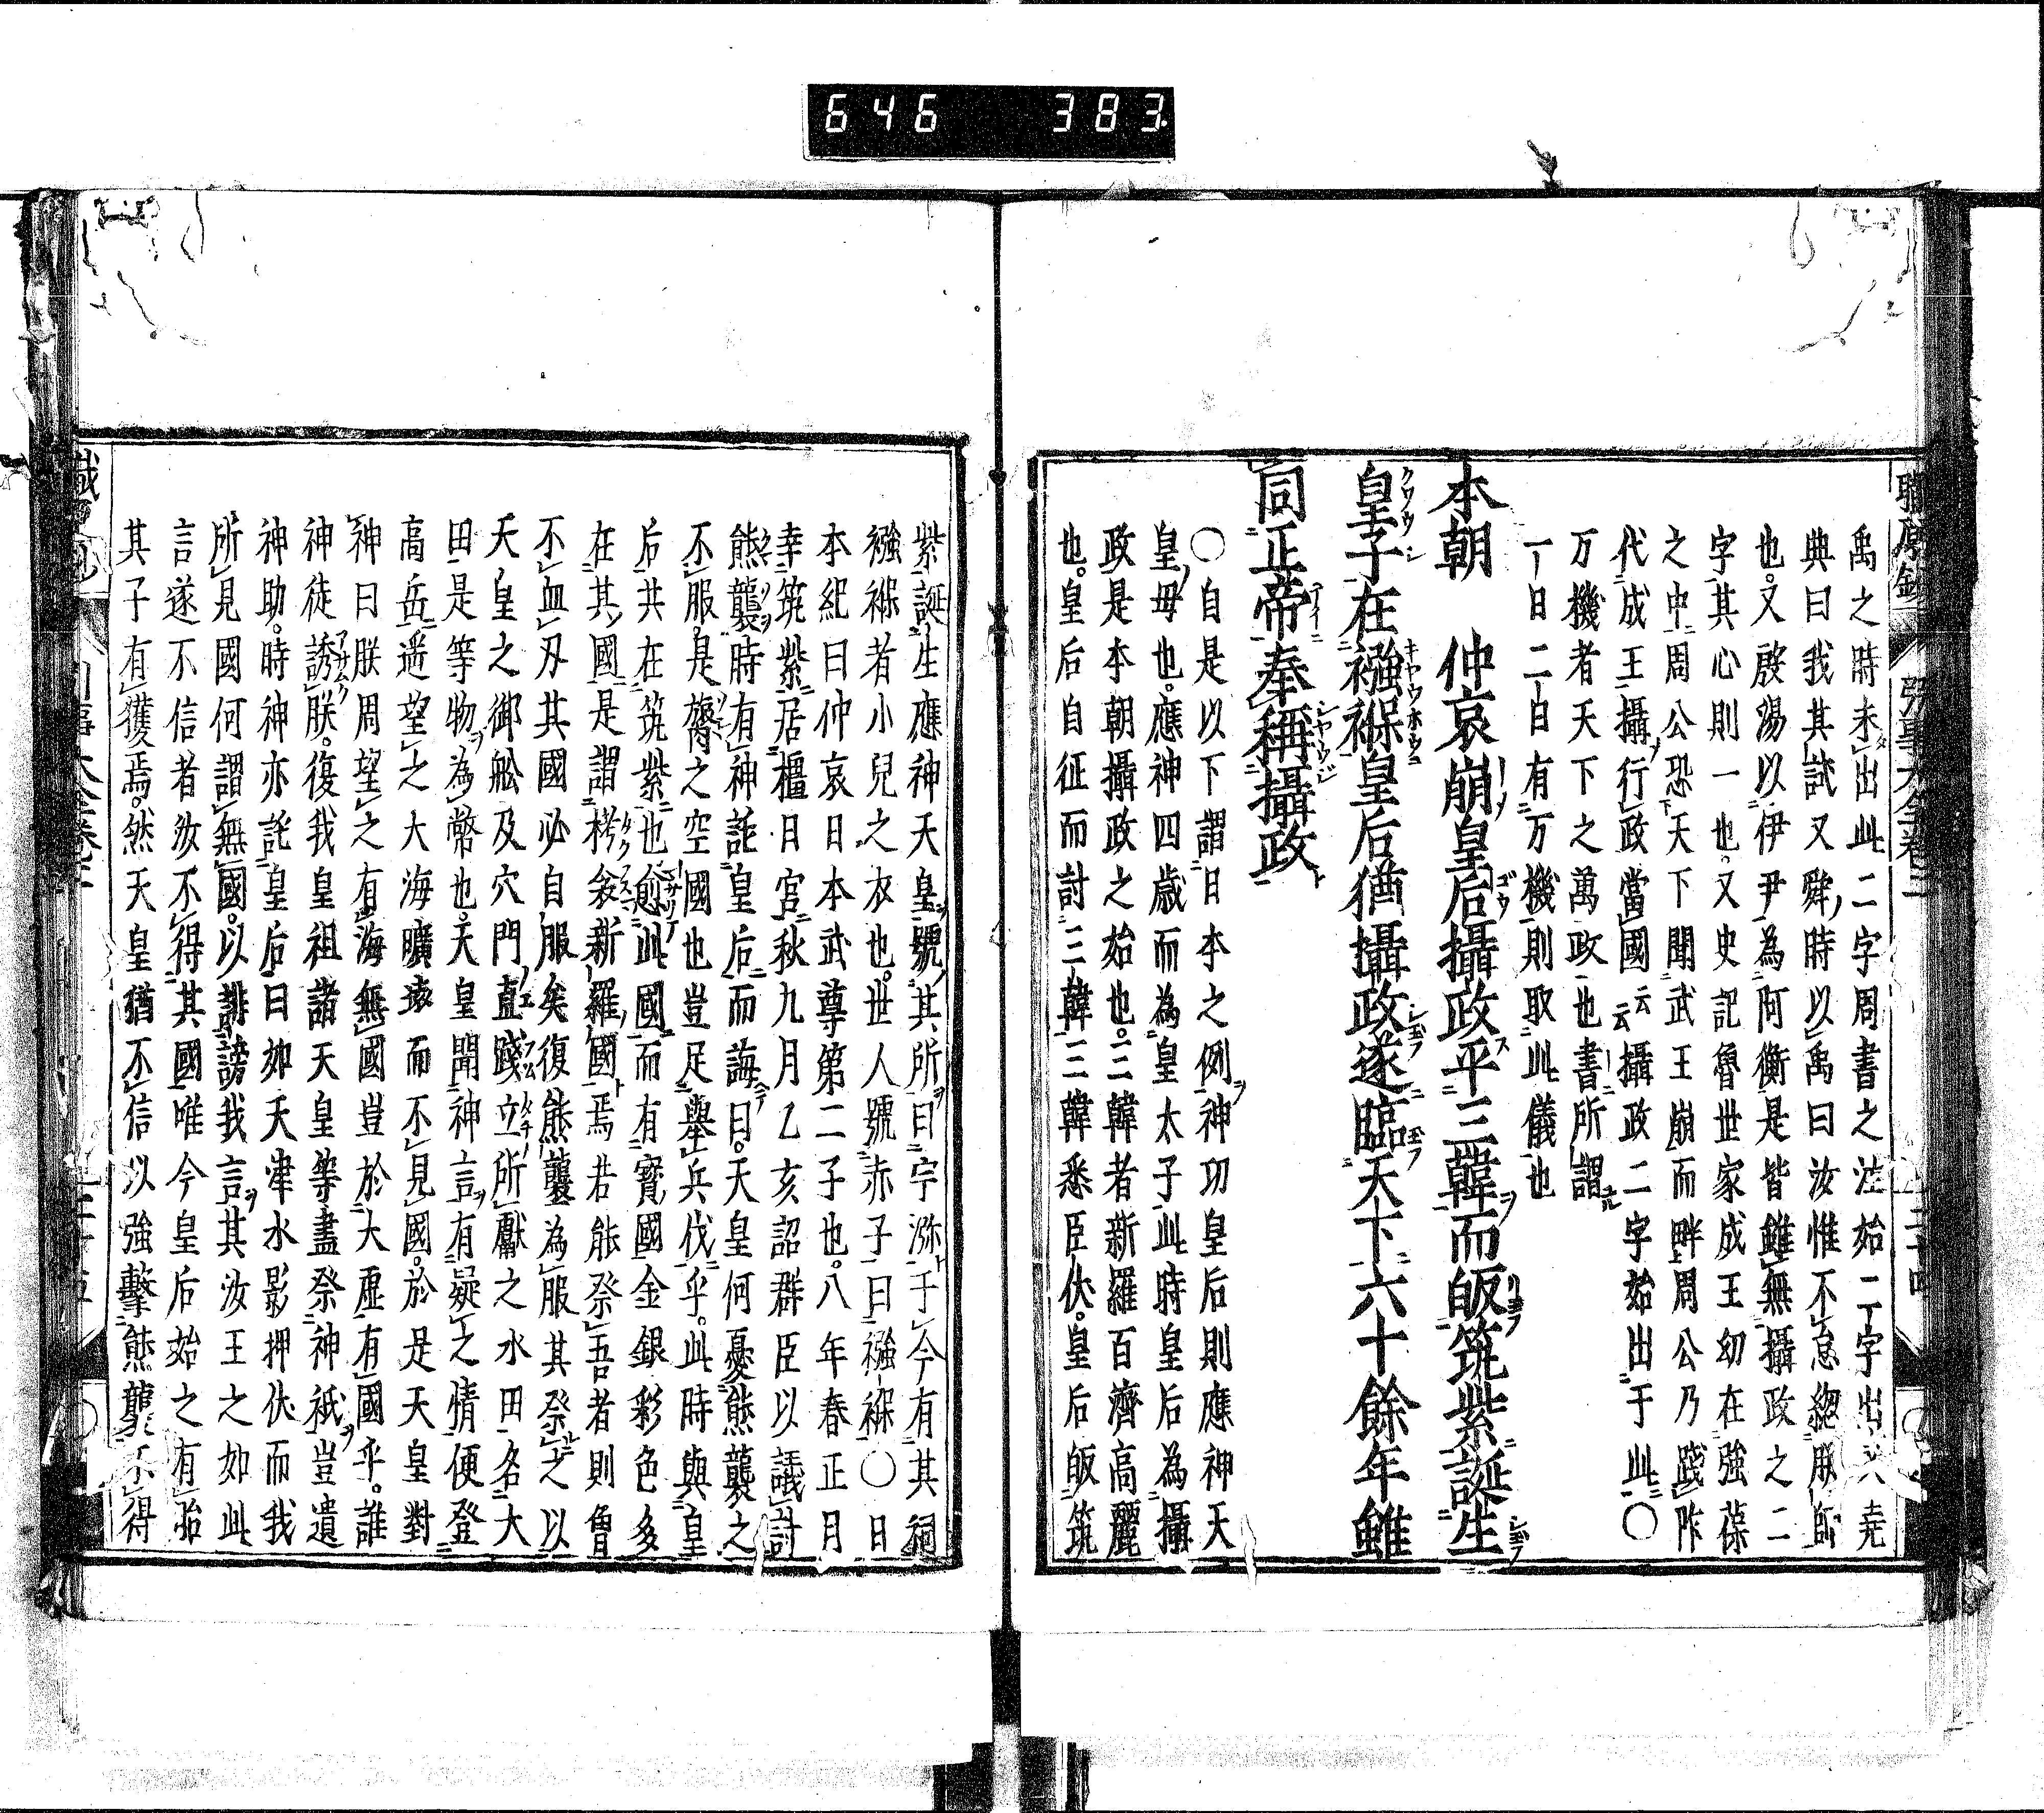 646 383
禹之時未出此二字周書之注始二字出
堯典曰我其試又舜時以禹曰汝惟不怠總朕師
也又殷湯以伊尹為阿衡是皆雖無攝政之二
字其心則一也又史記魯世家成王幼在強葆
之中周公恐天下聞武王崩而畔周公乃踐阼
代成王攝行政當國云云攝政二字始出于此〇
万機者天下之萬政也書所謂
一日二日有万機則取此儀也
本朝 仲哀崩皇后攝政平三韓而皈筑紫誕生
皇子在襁褓皇后猶攝政遂臨天下六十餘年雖
同正帝奉稱攝政
〇自是以下謂日本之例神功皇后則應神天
皇母也應神四歳而為皇太子此時皇后為攝
政是本朝攝政之始也三韓者新羅百濟高麗
也皇后自征而討三韓三韓悉臣伏皇后皈筑
紫誕生應神天皇號其所曰宇瀰于今有其祠
襁褓者小兒之衣也世人號赤子曰襁褓〇日
本紀曰仲哀日本武尊第二子也八年春正月
幸筑紫居橿日宮秋九月乙亥詔群臣以議討
熊襲時有神託皇后而誨曰天皇何憂熊襲之
不服是膂之空國也豈足舉兵伐乎此時與皇
后共在筑紫也愈此國而有寳國金銀彩色多
在其國是謂栲衾新羅國焉若能祭吾者則曾
不血刄其國必自服矣復熊襲為服其祭之以
天皇之御舩及穴門直踐立所獻之水田名大
田是等物為幣也天皇聞神言有疑之情便登
高岳遥望之大海曠遠而不見國於是天皇對
神曰朕周望之有海無國豈於大虚有國乎誰
神徒誘朕復我皇祖諸天皇等盡祭神祇豈遺
神助時神亦託皇后曰如天津水影押伏而我
所見國何謂無國以誹謗我言其汝王之如此
言遂不信者汝不得其國唯今皇后始之有胎
其子有獲焉然天皇猶不信以強擊熊襲不得